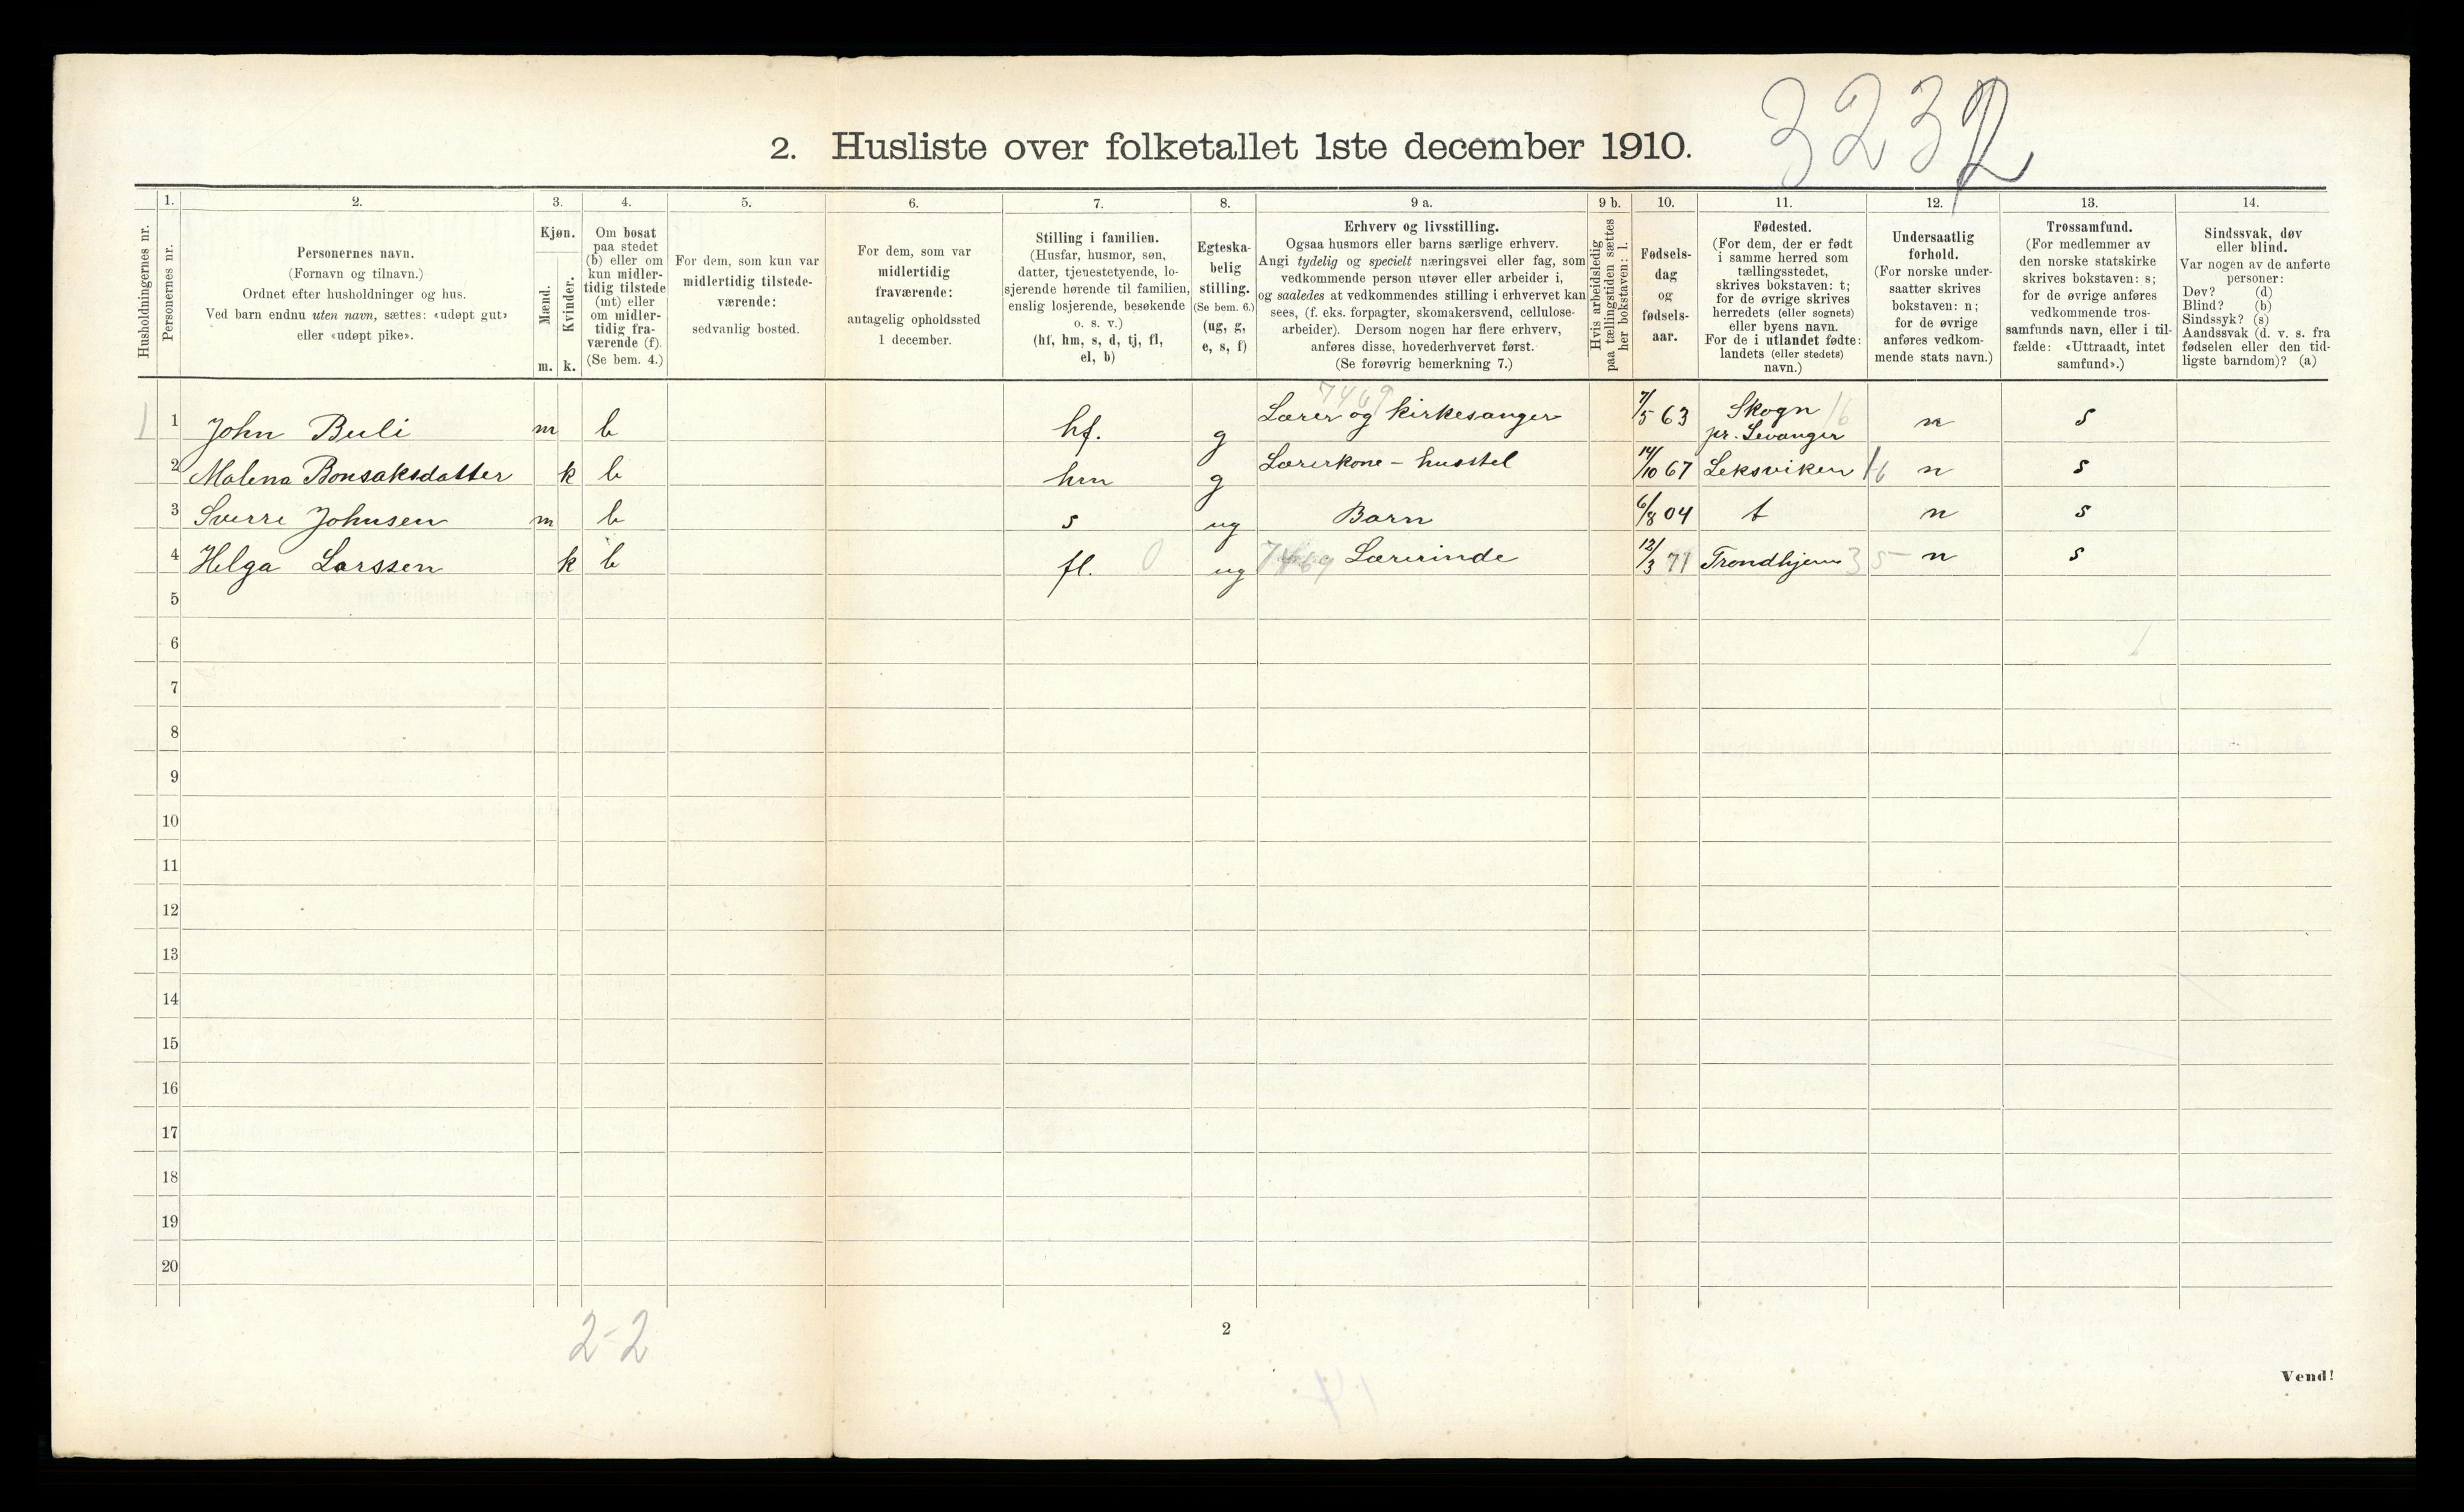 3232
2. Husliste over folketallet 1ste december 1910.
Husholdningernes nr.
1.
Personernes nr.
2.
Personernes navn.
(Fornavn og tilnavn.)
Ordnet efter husholdninger og hus.
Ved barn endnu uten navn, sættes: «udøpt gut»
eller «udøpt pike».
3.
Kjøn.
Mænd.
Kvinder.
m. k.
4.
Om bosat
paa stedet
(b) eller om
kun midler-
tidig tilstede
(mt) eller
om midler-
tidig fra-
værende (f).
(Se bem. 4.)
5.
For dem, som kun var
midlertidig tilstede-
værende:
sedvanlig bosted.
6.
For dem, som var
midlertidig
fraværende:
antagelig opholdssted
1 december.
7.
Stilling i familien.
(Husfar, husmor, søn,
datter, tjenestetyende, lo-
sjerende hørende til familien,
enslig losjerende, besøkende
o. s. v.)
(hf, hm, s, d, tj, fl,
el, b)
8.
Egteska-
belig
stilling.
(Se bem. 6.)
(ug, g,
e, s, f)
9 a.
Erhverv og livsstilling.
Ogsaa husmors eller barns særlige erhverv.
Angi tydelig og specielt næringsvei eller fag, som
vedkommende person utøver eller arbeider i,
og saaledes at vedkommendes stilling i erhvervet kan
sees, (f. eks. forpagter, skomakersvend, cellulose-
arbeider). Dersom nogen har flere erhverv,
anføres disse, hovederhvervet først.
(Se forøvrig bemerkning 7.)
9 b.
Hvis arbeidsledig
paa tællingstiden sættes
her bokstaven: l.
10.
Fødsels-
dag
og
fødsels-
aar.
11.
Fødested.
(For dem, der er født
i samme herred som
tællingsstedet,
skrives bokstaven: t;
for de øvrige skrives
herredets (eller sognets)
eller byens navn.
For de i utlandet fødte:
landets (eller stedets)
navn.)
12.
Undersaatlig
forhold.
(For norske under-
saatter skrives
bokstaven: n;
for de øvrige
anføres vedkom-
mende stats navn.)
13.
Trossamfund.
(For medlemmer av
den norske statskirke
skrives bokstaven: s;
for de øvrige anføres
vedkommende tros-
samfunds navn, eller i til-
fælde: «Uttraadt, intet
samfund».)
14.
Sindssvak, døv
eller blind.
Var nogen av de anførte
personer:
Døv? (d)
Blind? (b)
Sindssyk? (s)
Aandssvak (d. v. s. fra
fødselen eller den tid-
ligste barndom)? (a)
7469
1 1 John Buli m b hf. g Lærer og kirkesanger 7/5 63 Skogn 16 n s
pr. Levanger
2 Malena Bonsaksdatter k b hm g Lærerkone - husstel 14/10 67 Leksviken 16 n s
3 Sverre Johnsen m b s ug Barn 6/8 04 t n s
4 Helga Larssen k b fl. 0 ug 7469 Lærerinde 12/3 71 Trondhjem 35 n s
5
6
7
8
9
10
11
12
13
14
15
16
17
18
19
20
2-2
2
Vend!